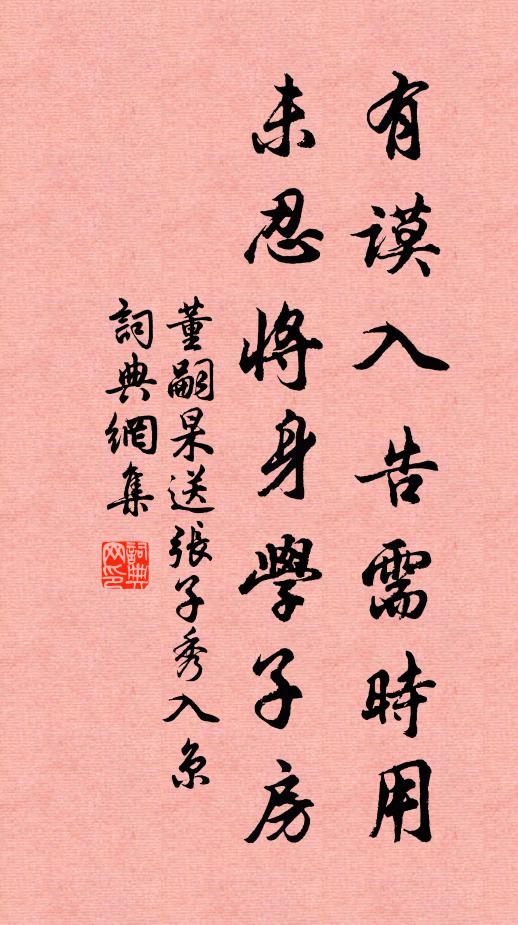 有謨入告需時用
未忍將身學子房
董嗣杲送張子秀入京
詞典網集
詞典網印